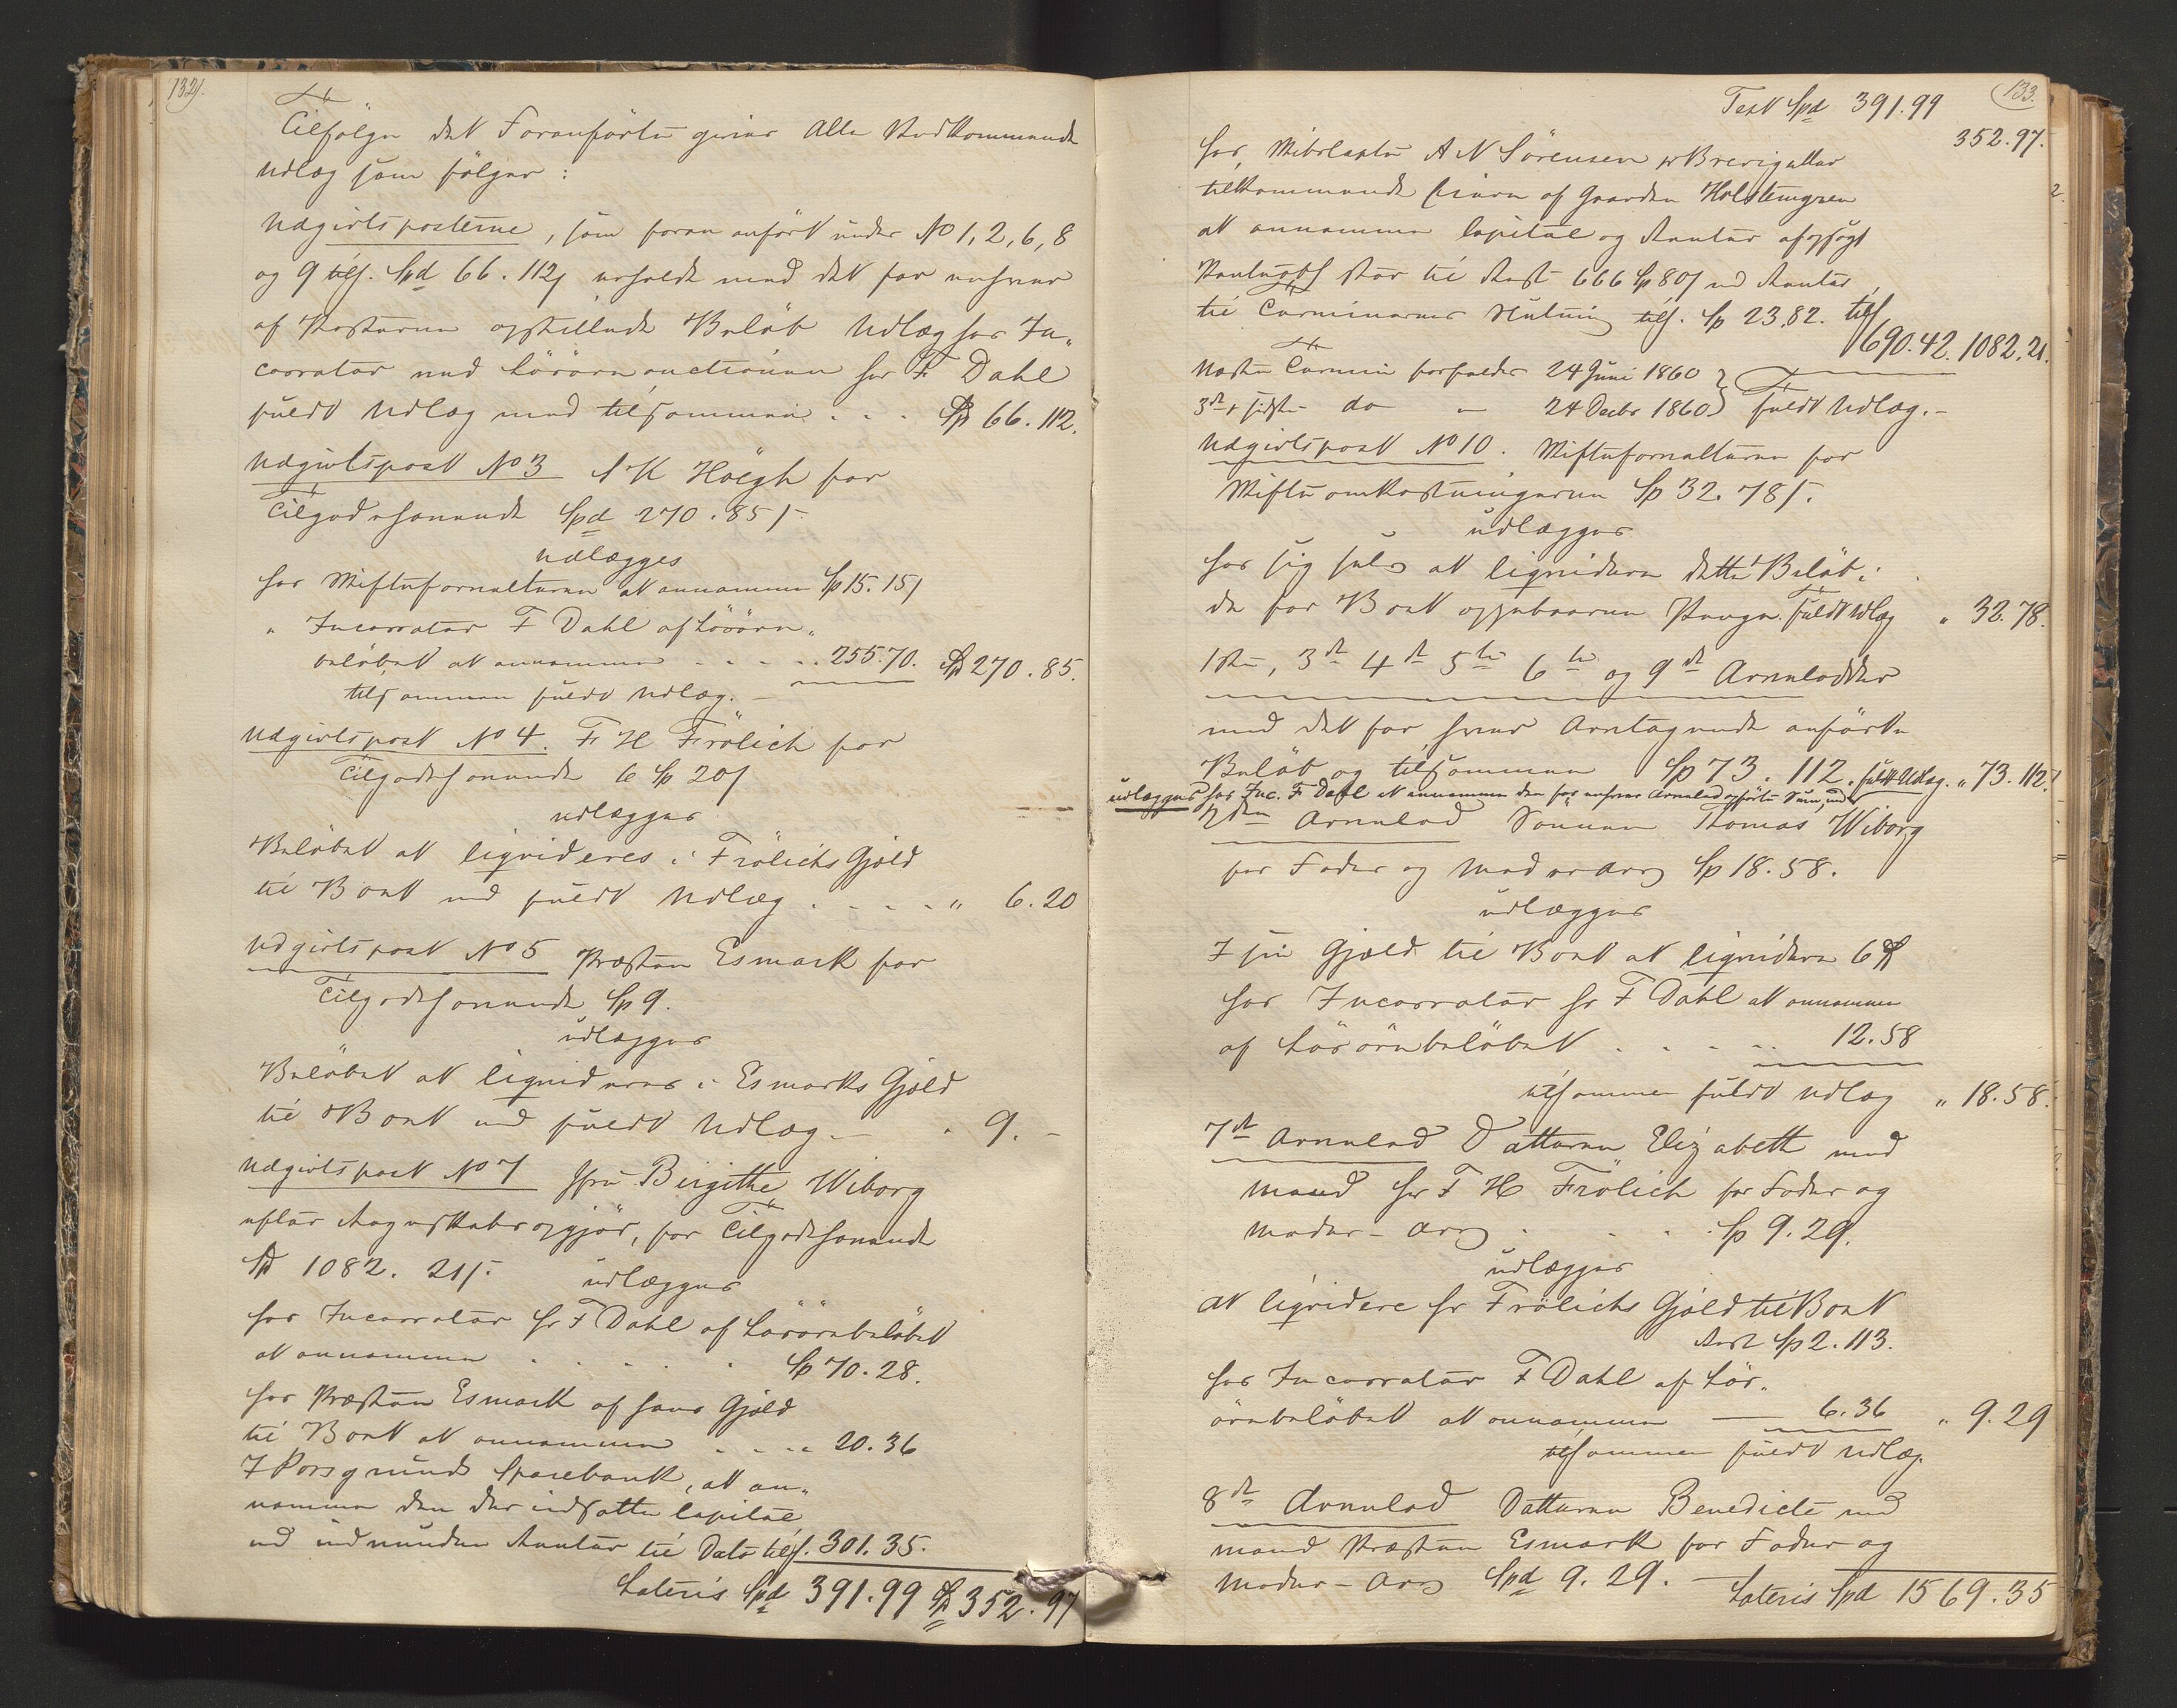 132.
Tilfölge det Foranförte gives Alle Vedkommende
Udlæg som fölger:
Udgivtsposterne, som foran anfört under No 1, 2, 6, 8
og 9 tils. Spd 66. 112 s erholde med det for enhver
af Posterne opstillede Belöb Udlæg hos In-
cassator ved Lösöreauctionen hr F Dahl
fuldt Udlæg med tilsammen . . . Sp 66. 112.
Udgivtspost No 3 A K Höegh for
Tilgodehavende Spd 270. 85 s
udlægges
hos Skifteforvalteren at annamme Sp 15. 15 s
" Incassator F Dahl af Lösöre-
belöbet at annamme . . . . . 255. 70. Sp 270. 85.
tilsammen fuldt Udlæg. –
Udgivtspost No 4. F H Frölich for
Tilgodehavende 6 Sp 20 s
udlægges
Belöbet at liqvideres i Frölichs Gjæld
til Boet med fuldt Udlæg . . . . " 6. 20
Udgivtspost No 5 Præsten Esmark for
Tilgodehavende Sp 9.
udlægges
Belöbet at liqvideres i Esmarks Gjæld
til Boet med fuldt Udlæg – " 9. –
Udgivtspost No 7 Jfru Birgithe Wiborg
efter Regnskabsopgjör, for Tilgodehavende
Sp 1082. 21 s. udlægges
hos Incassator hr F Dahl af Lösörebelöbet
at annamme . . . . . Sp 70. 28.
hos Præsten Esmark af hans Gjæld
til Boet at annamme . . . . 20. 36
I Porsgrunds Sparebank, at an-
namme den der indsatte Capital
med indvunden Renter til Dato tils. 301. 35.
Lateris Spd 391. 99 Sp 352. 97
133.
Text Spd 391. 99
352. 97.
hos A N Sörensen
tilkommende Eiere af Gaarden Holstengren
at annamme Capital og Renter
til Rest 666 Sp 80 s med Renter
til Terminernes Slutning tils. Sp 23. 82. tils
690. 42. 1082. 21.
Næste Termin forfalder 24 Juni 1860
3die & sidste do – 24 Decbr 1860 } fuldt Udlæg. –
Udgivtspost No 10. Skifteforvalteren for
Skifteomkostningerne Sp 32. 78 s.
udlægges
hos sig selv at liqvidere dette Belöb i
de for Boet oppebaarne Penge. fuldt Udlæg " 32. 78.
1ste, 3die 4de 5te 6te og 9de Arvelodder
med det for hver Arvtagende anförte
Belöb og tilsammen Sp 73. 112. fuldt Udlæg. " 73. 112.
udlægges hos Inc. F Dahl at annamme den for enhver Arvelod opförte Sum, med
2den Arvelod Sönnen Thomas Wiborg
for Fader og Moderarv Sp 18. 58.
udlægges
I sin Gjæld til Boet at liqvidere 6 Sp
hos Incassator hr F Dahl at annamme
af Lösörebelöbet . . . . . 12. 58
tilsammen fuldt Udlæg " 18. 58.
7de Arvelod Datteren Elizabeth med
Mand hr F H Frölich for Fader og
Moder-Arv . . . . Sp 9. 29.
udlægges
At liqvidere hr Frölichs Gjæld til Boet
Rest Sp 2. 113.
hos Incassator F Dahl af Lös-
örebelöbet at annamme – 6. 36 " 9. 29
tilsammen fuldt Udlæg.
8de Arvelod Datteren Benedicte med
Mand Præsten Esmark for Fader og
Moder-Arv Spd 9. 29. –
Lateris Spd 1569. 35